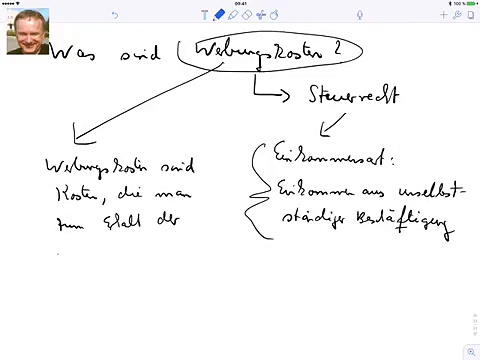 09:41
100 %
T
Was sind Werbungskosten?
Steuerrecht
Werbungskosten sind
Kosten, die man
zum Erhalt der
Einkommensart:
Einkommen aus unselbst-
ständiger Beschäftigung